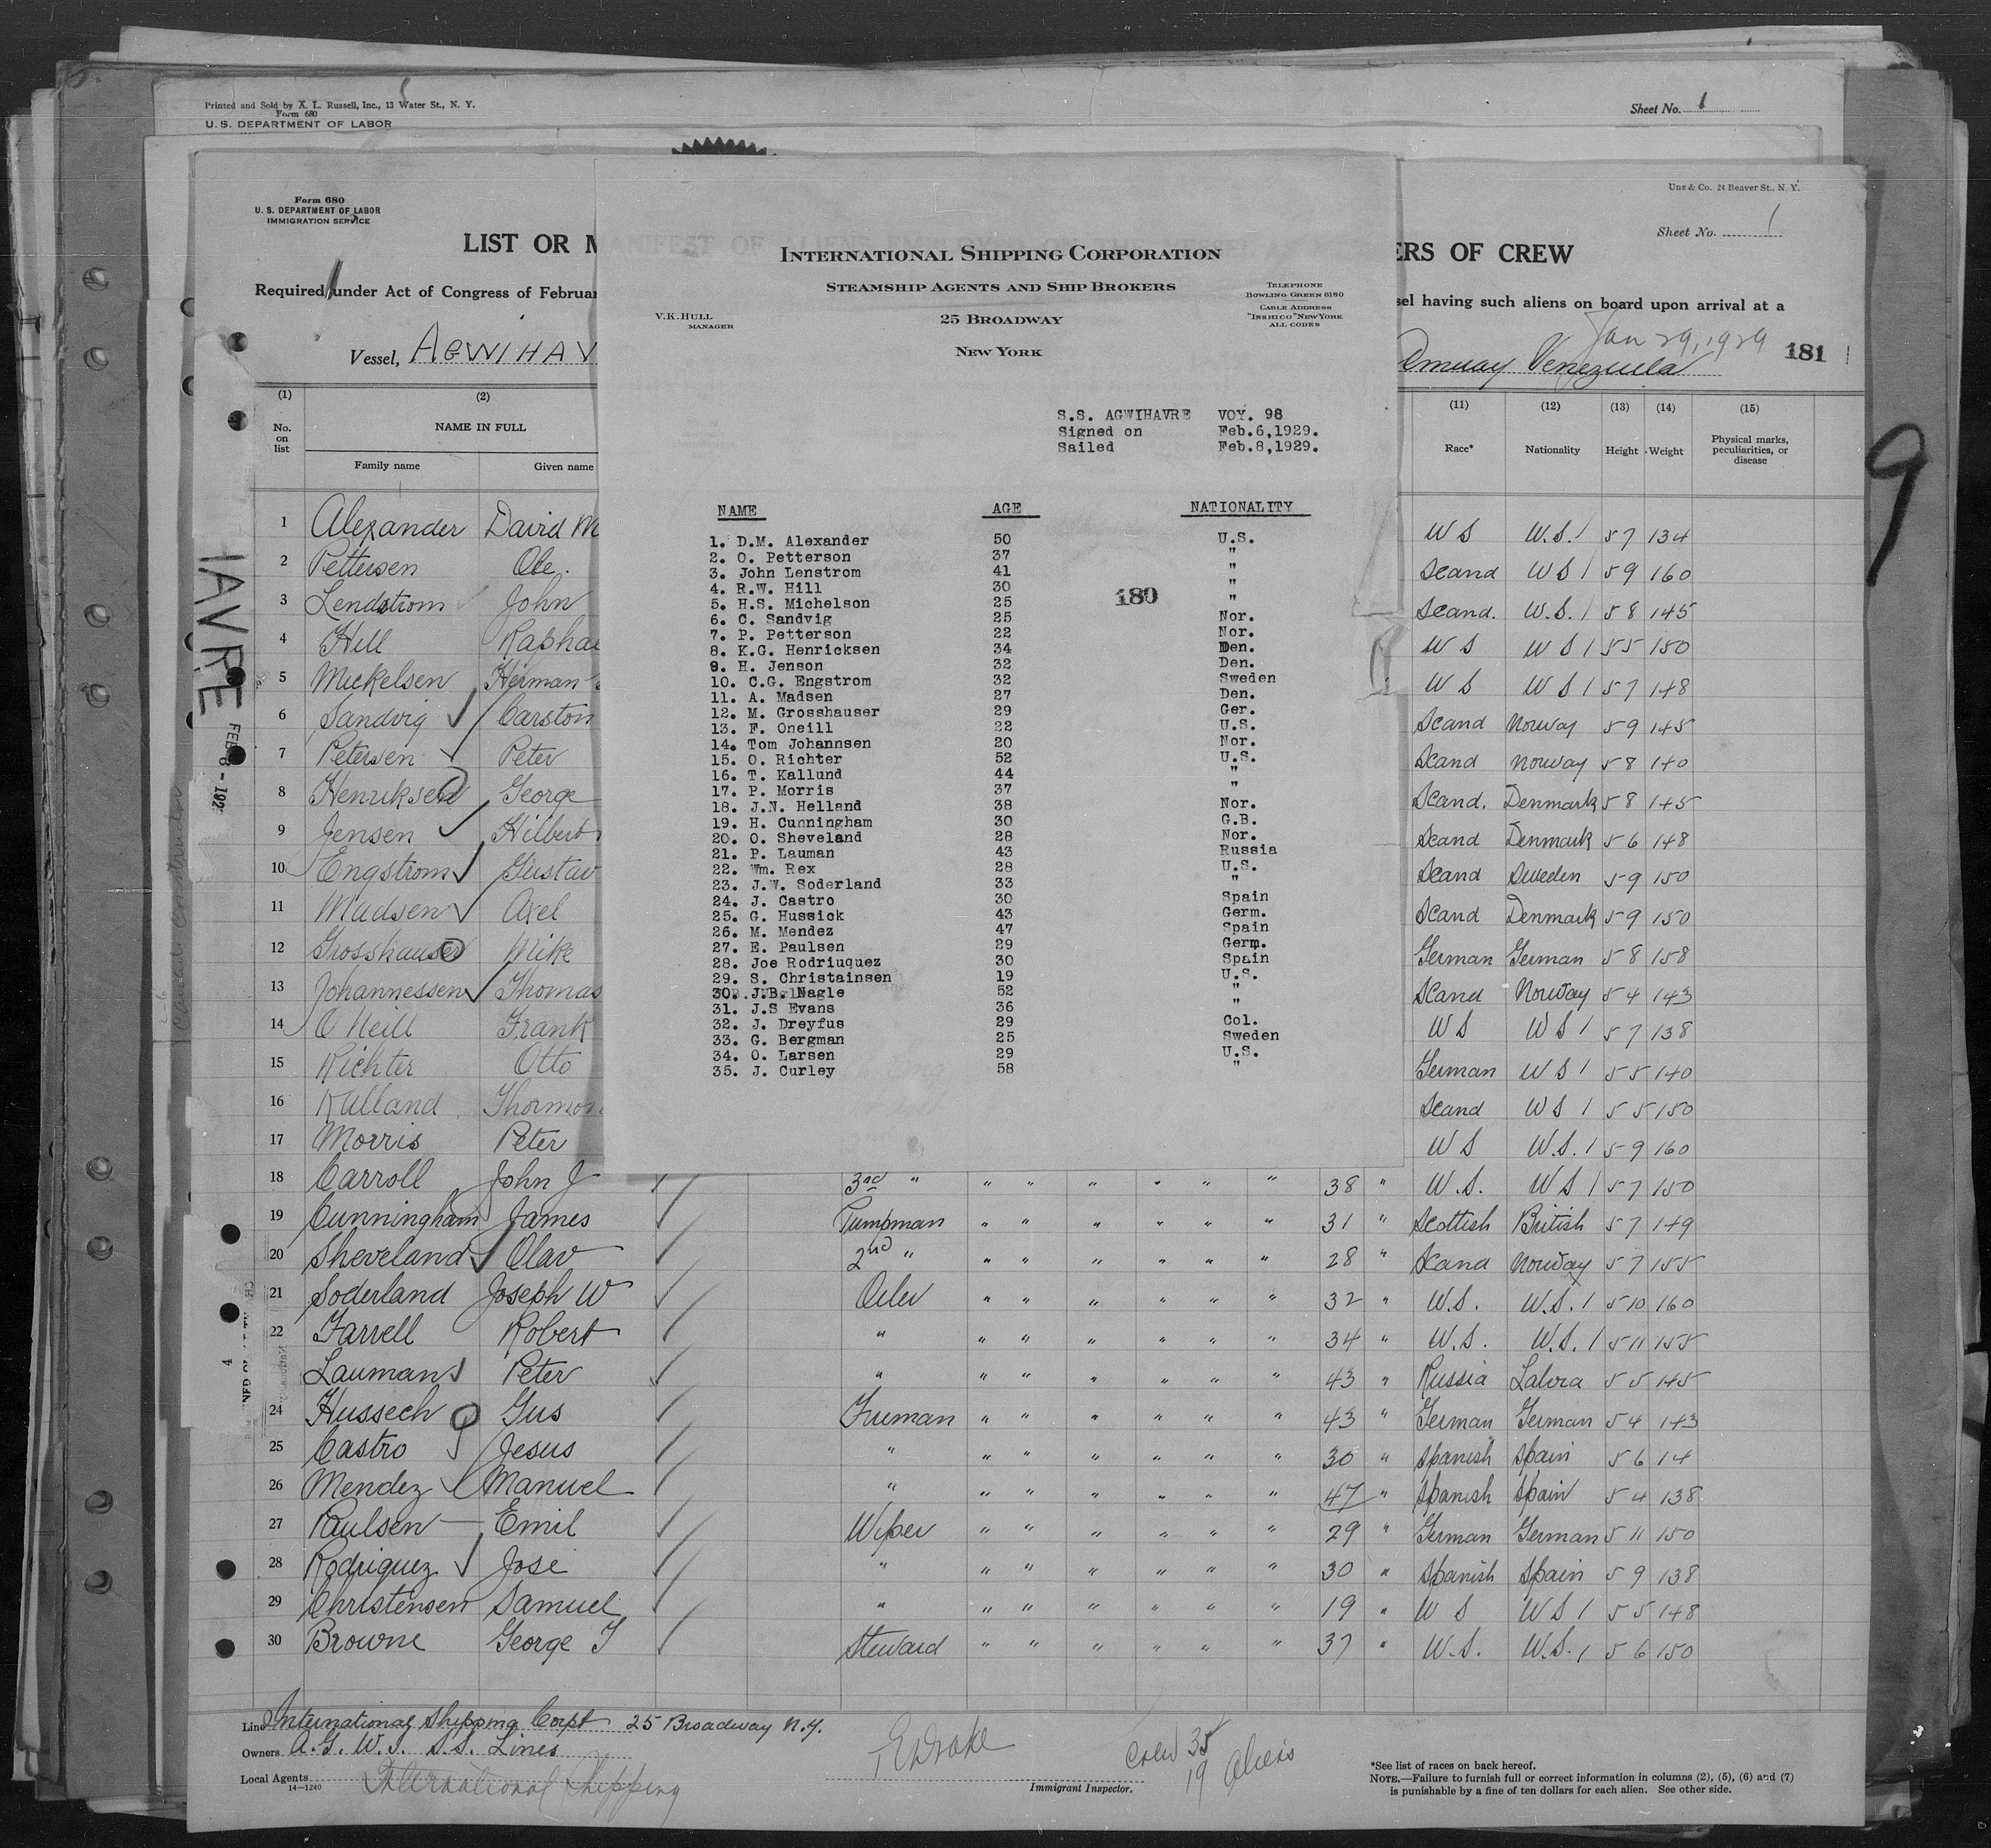 Printed and Sold by A. L. Russell, Inc., 13 Water St., N. Y.
Form 680
U. S. DEPARTMENT OF LABOR
Sheet No. 1
Unz & Co. 24 Beaver St., N. Y.
Form 680
U. S. DEPARTMENT OF LABOR
IMMIGRATION SERVICE
Sheet No. 1
LIST OR M
ERS OF CREW
Required under Act of Congress of Februar
sel having such aliens on board upon arrival at a
Jan 29, 1929
Vessel, AGWIHAV
Amuay Venezuela
181
INTERNATIONAL SHIPPING CORPORATION
STEAMSHIP AGENTS AND SHIP BROKERS
25 BROADWAY
NEW YORK
V.K.HULL
MANAGER
TELEPHONE
BOWLING GREEN 6180
CABLE ADDRESS
"INSHICO" NEW YORK
ALL CODES
S.S. AGWIHAVRE VOY. 98
Signed on Feb.6,1929.
Sailed Feb.8,1929.
NAME AGE NATIONALITY
1. D.M. Alexander 50 U.S.
2. O. Petterson 37 "
3. John Lenstrom 41 "
4. R.W. Hill 30 "
5. H.S. Michelson 25 "
180
6. C. Sandvig 25 Nor.
7. P. Petterson 22 Nor.
8. K.G. Henricksen 34 Den.
9. H. Jenson 32 Den.
10. C.G. Engstrom 32 Sweden
11. A. Madsen 27 Den.
12. M. Grosshauser 29 Ger.
13. F. Oneill 22 U.S.
14. Tom Johannsen 20 Nor.
15. O. Richter 52 U.S.
16. T. Kallund 44 "
17. P. Morris 37 "
18. J.N. Helland 38 Nor.
19. H. Cunningham 30 G.B.
20. O. Sheveland 28 Nor.
21. P. Lauman 43 Russia
22. Wm. Rex 28 U.S.
23. J.W. Soderland 33 "
24. J. Castro 30 Spain
25. G. Hussick 43 Germ.
26. M. Mendez 47 Spain
27. E. Paulsen 29 Germ.
28. Joe Rodriuquez 30 Spain
29. S. Christainsen 19 U.S.
30. J.B. Nagle 52 "
31. J.S Evans 36 "
32. J. Dreyfus 29 Col.
33. G. Bergman 25 Sweden
34. O. Larsen 29 U.S.
35. J. Curley 58 "
(1) (2) (11) (12) (13) (14) (15)
No. on list
NAME IN FULL
Family name Given name
Race* Nationality Height Weight Physical marks, peculiarities, or disease
1 Alexander David M U S U.S. 1 5 7 134
2 Pettersen Ole. Scand U S 1 5 9 160
3 Lendstrom John Scand. U.S. 1 5 8 145
4 Hill Raphae U S U S 1 5 5 150
5 Mickelsen Herman U S U S 1 5 7 148
6 Sandvig Carston Scand Norway 5 9 145
7 Petersen Peter Scand Norway 5 8 140
8 Henriksen George Scand. Denmark 5 8 145
9 Jensen Hilbert Scand Denmark 5 6 148
10 Engstrom Gustav Scand Sweden 5 9 150
11 Madsen Axel Scand Denmark 5 9 150
12 Grosshauser Mike German German 5 8 158
13 Johannessen Thomas Scand Norway 5 4 143
14 O Neill Frank U S U S 1 5 7 138
15 Richter Otto German U S 1 5 5 140
16 Kulland Thormo Scand U S 1 5 5 150
17 Morris Peter U S U.S. 1 5 9 160
18 Carroll John J 3rd " " " " " " " 38 " U.S. U S 1 5 7 150
19 Cunningham James Pumpman " " " " " " 31 " Scottish British 5 7 149
20 Sheveland Olav 2nd " " " " " " " 28 " Scand Norway 5 7 155
21 Soderland Joseph W Oiler " " " " " " 32 " U.S. U.S. 1 5 10 160
22 Farrell Robert " " " " " " " 34 " U.S. U.S. 1 5 11 155
Lauman Peter " " " " " " " 43 " Russia Latvia 5 5 145
24 Hussech Gus Fireman " " " " " " 43 " German German 5 4 143
25 Castro Jesus " " " " " " " 30 " Spanish Spain 5 6 14
26 Mendez Manuel " " " " " " " 47 " Spanish Spain 5 4 138
27 Paulsen Emil Wiper " " " " " " 29 " German German 5 11 150
28 Rodriguez Jose " " " " " " " 30 " Spanish Spain 5 9 138
29 Christensen Samuel " " " " " " " 19 " U S U S 1 5 5 148
30 Browne George T Steward " " " " " " 37 " U.S. U.S. 1 5 6 150
IAVRE
FEB 8 - 192
9
Line International Shipping Corpt 25 Broadway N.Y.
Owners A.G.W.I. S.S. Lines
Local Agents International Shipping
14—1240
Immigrant Inspector.
Crew 35
19 aliens
*See list of races on back hereof.
NOTE.—Failure to furnish full or correct information in columns (2), (5), (6) and (7)
is punishable by a fine of ten dollars for each alien. See other side.